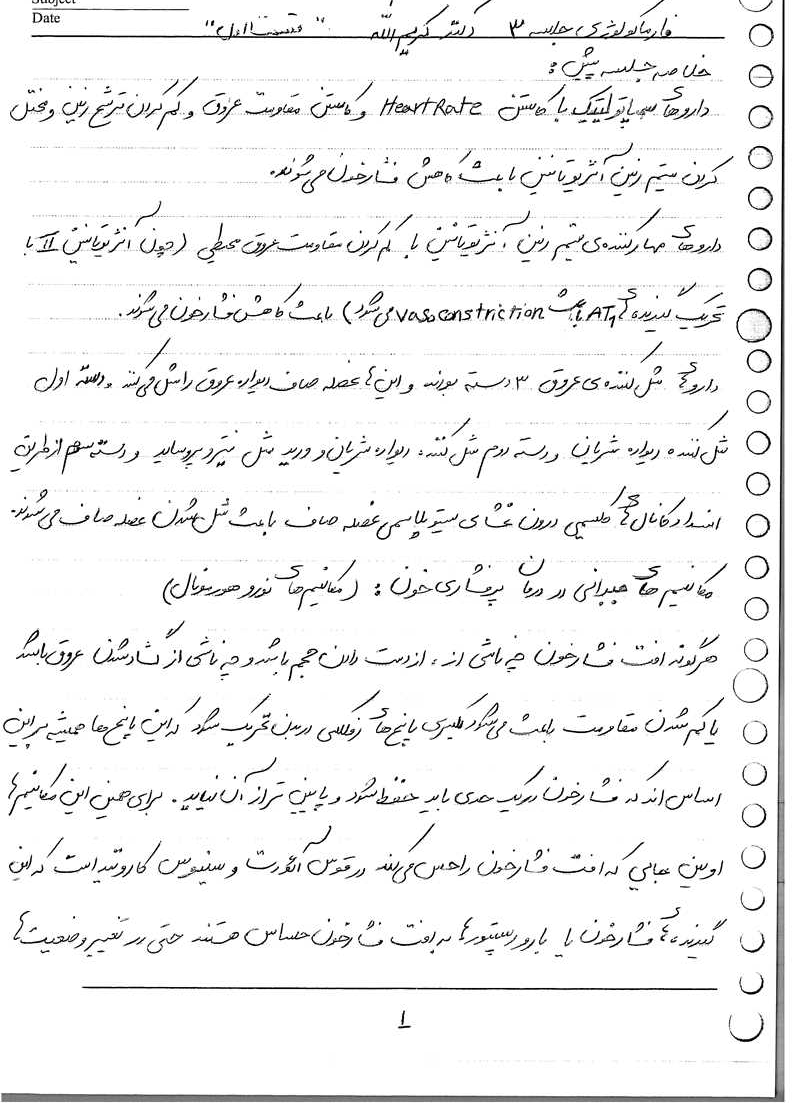 Subject
Date
فارماکولوژی جلسه ۳ دکتر کریم الله "قسمت اول"
خلاصه جلسه پیش :
داروهای سمپاتولیتیک با کاستن Heart Rate و کاستن مقاومت عروق و کم کردن ترشح رنین و مختل
کردن سیتم رنین آنژیوتانسین باعث کاهش فشارخون می شوند.
داروهای مهارکننده ی سیتم رنین آنژیوتانسین با کم کردن مقاومت عروق محیطی (چون آنژیوتانسین II با
تحریک گیرنده های AT1 باعث vasoconstriction می شود) باعث کاهش فشارخون می شوند.
داروهای شل کننده ی عروق ۳ دسته بودند و این ها عضله صاف دیواره عروق را شل می کنند. دسته اول
شل کننده دیواره شریان و دسته دوم شل کننده دیواره شریان و ورید مثل نیتروپروساید و دسته سوم از طریق
انسداد کانال های کلسیمی درون غشای سیتوپلاسمی عضله صاف باعث شل شدن عضله صاف می شوند.
مکانیسم های جبرانی در درمان پرفشاری خون : (مکانیسم های نوروهورمونال)
هرگونه افت فشارخون چه ناشی از، از دست دادن حجم باشد و چه ناشی از گشاد شدن عروق باشد
یا کم شدن مقاومت باعث می شود یکسری پاسخ های رفلکسی در بدن تحریک شود که این پاسخ ها همیشه بر این
اساس اند که فشارخون در یک حدی باید حفظ شود و پایین تر از آن نیاید. برای همین این مکانیسم ها
اولین جایی که افت فشارخون را حس می کند در قوس آئورت و سینوس کاروتید است که این
گیرنده های فشارخون یا بارورسپتورها به افت فشارخون حساس هستند حتی در تغییر وضعیت ها
۱